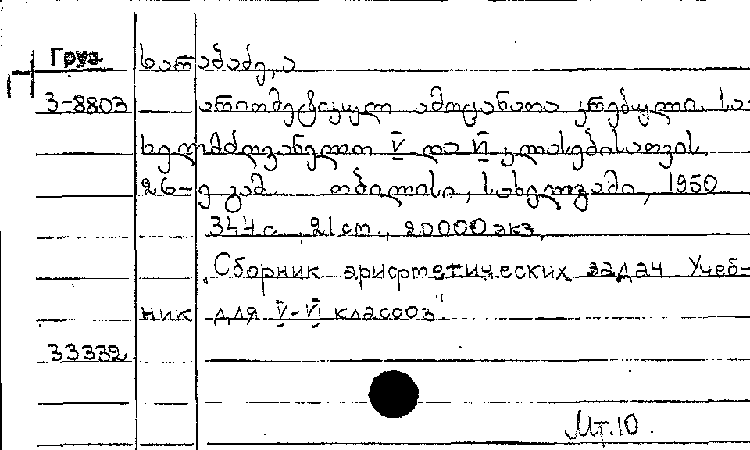 Груз.
3-8803
არითმეტიკულ ამოცანათა კრებული. სა-
ხელმძღვანელო V და VI კლასებისათვის.
26-ე გამ. თბილისი, სახელგამი, 1950
344 с., 21 см., 20000 экз.
"Сборник арифметических задач Учеб-
ник для V-VI классов".
33332
Мт.10.